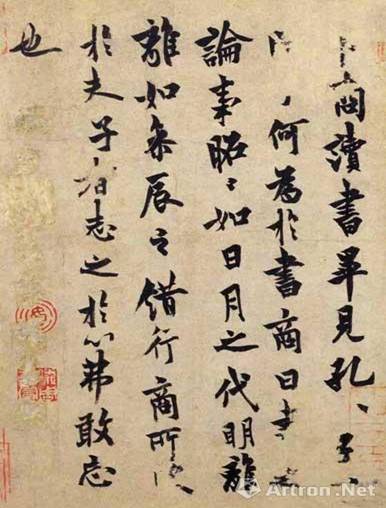 卜商讀書畢見孔〻子〻
何為於書商曰書
論事昭〻如日月之代明離
離如參辰之錯行商所
於夫子者志之於心弗敢忘
也
Artron.Net